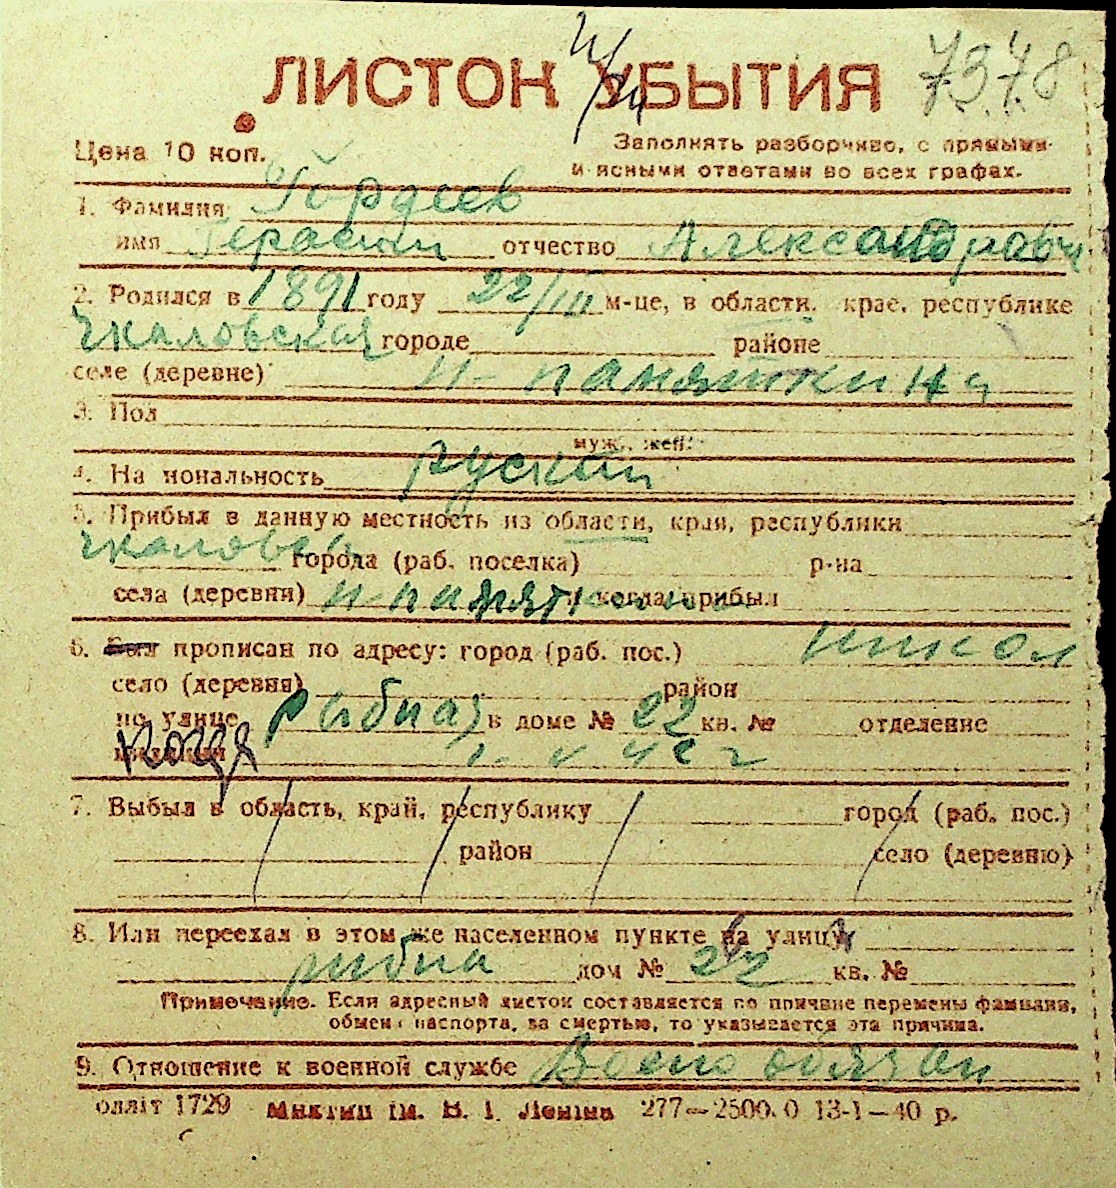 7378
ЛИСТОК УБЫТИЯ
Цена 10 коп.
Заполнять разборчиво, с прямыми
и ясными ответами во всех графах.
1. Фамилия Гордеев
имя Герасим отчество Александрович
2. Родился в 1891 году 22/III м-це, в области, крае, республике
Чкаловская городе районе
селе (деревне) Н-Памяткина
3. Пол
муж., жен.
4. Национальность руский
5. Прибыл в данную местность из области, края, республики
Чкаловск города (раб. поселка) р-на
села (деревни) Н-Памяткино и когда прибыл
6. Был прописан по адресу: город (раб. пос.) Никол
село (деревня) район
по улице Рыбная в доме № 22 кв. № отделение
когда
7. Выбыл в область, край, республику город (раб. пос.)
район село (деревню)
8. Или переехал в этом же населенном пункте на улицу
рибна дом № 22 кв. №
Примечание. Если адресный листок составляется по причине перемены фамилии,
обмена паспорта, за смертью, то указывается эта причина.
9. Отношение к военной службе Воено обязан
олліт 1729 Миктип ім. В. І. Леніна 277—2500.0 13-1—40 р.